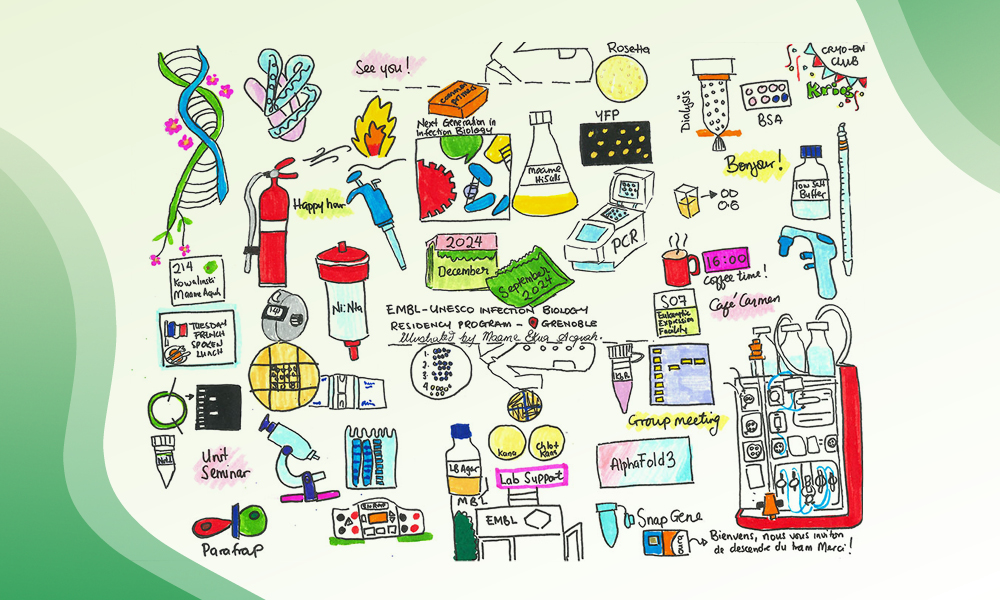 See you!
Rosetta
CRYO-EM
CLUB
Krios
Dialysis
BSA
Next Generation in
Infection Biology
YFP
Maame
Bonjour!
Low Salt
Buffer
OD
0.6
Happy hour
PCR
2024
December
September
2024
16:00
coffee time!
Café Carmen
214
Kowalinski
Ni:Nta
S07
Eukaryotic
Expression
Facility
EMBL-UNESCO INFECTION BIOLOGY
RESIDENCY PROGRAM - GRENOBLE
Illustrated by Maame Ekua Acquah
TUESDAY
FRENCH
SPOKEN
LUNCH
1.
2.
3.
4.
Group meeting
Kana
Chlor
Kana
Unit
Seminar
LB Agar
MB1
Lab Support
AlphaFold3
EMBL
SnapGene
Parafrap
Bienvens, nous vous inviton
de descendre du tram Merci!